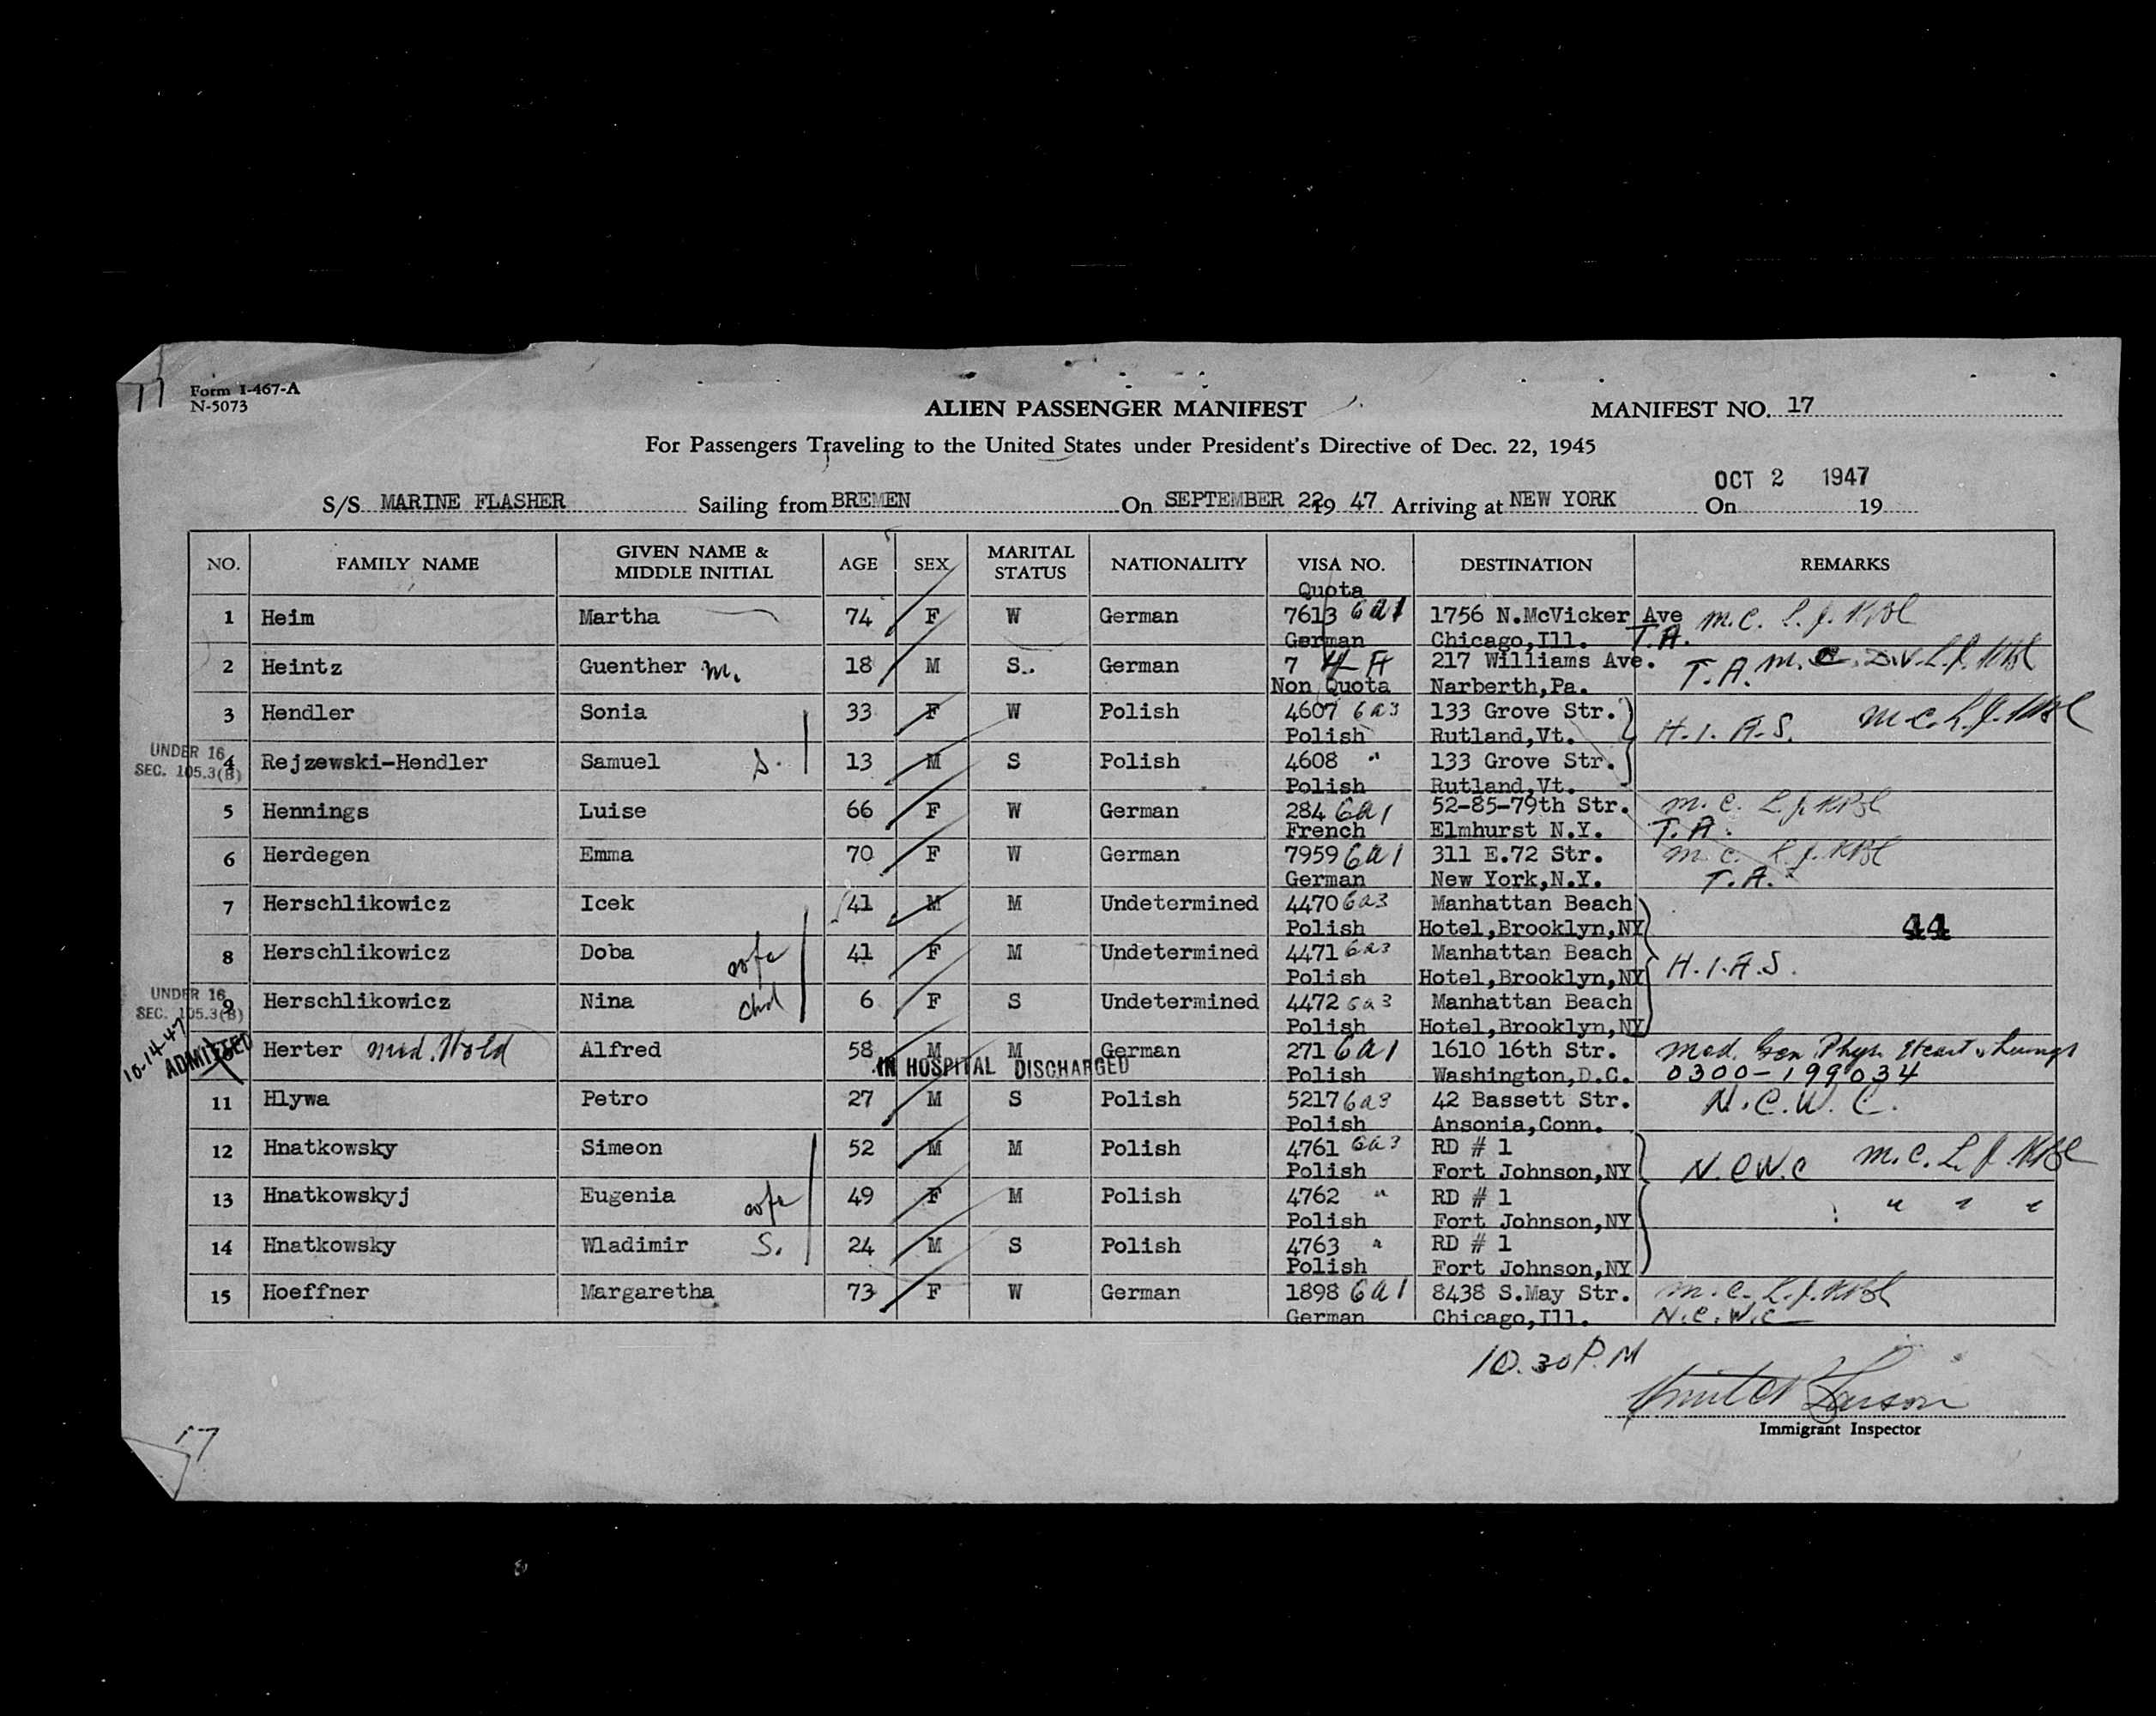 17
Form I-467-A
N-5073
ALIEN PASSENGER MANIFEST
MANIFEST NO. 17
For Passengers Traveling to the United States under President's Directive of Dec. 22, 1945
OCT 2 1947
S/S MARINE FLASHER Sailing from BREMEN On SEPTEMBER 22 19 47 Arriving at NEW YORK On 19
NO. FAMILY NAME GIVEN NAME & MIDDLE INITIAL AGE SEX MARITAL STATUS NATIONALITY VISA NO. DESTINATION REMARKS
Quota
1 Heim Martha 74 F W German 7613 6a1 1756 N.McVicker Ave M.C. L.J.
German Chicago,Ill. T.A.
2 Heintz Guenther M. 18 M S. German 7 4 A 217 Williams Ave. T.A. M.C. L.J.
Non Quota Narberth,Pa.
3 Hendler Sonia 33 F W Polish 4607 6a3 133 Grove Str. H.I.A.S. M.C. L.J.
Polish Rutland,Vt.
UNDER 16
SEC. 105.3(B)
4 Rejzewski-Hendler Samuel S. 13 M S Polish 4608 " 133 Grove Str.
Polish Rutland,Vt.
5 Hennings Luise 66 F W German 284 6a1 52-85-79th Str. M.C. L.J.
French Elmhurst N.Y. T.A.
6 Herdegen Emma 70 F W German 7959 6a1 311 E.72 Str. M.C. L.J.
German New York,N.Y. T.A.
7 Herschlikowicz Icek 41 M M Undetermined 4470 6a3 Manhattan Beach
Polish Hotel,Brooklyn,NY 44
8 Herschlikowicz Doba wfe 41 F M Undetermined 4471 6a3 Manhattan Beach H.I.A.S.
Polish Hotel,Brooklyn,NY
UNDER 16
SEC. 105.3(B)
9 Herschlikowicz Nina chd 6 F S Undetermined 4472 6a3 Manhattan Beach
Polish Hotel,Brooklyn,NY
10-14-47
ADMITTED
Herter Med. Hold Alfred 58 M M German 271 6a1 1610 16th Str. Med. Gen. Phys. Heart & Lungs
IN HOSPITAL DISCHARGED Polish Washington,D.C. 0300-199034
11 Hlywa Petro 27 M S Polish 5217 6a3 42 Bassett Str. N.C.W.C.
Polish Ansonia,Conn.
12 Hnatkowsky Simeon 52 M M Polish 4761 6a3 RD # 1 N.C.W.C M.C. L.J.
Polish Fort Johnson,NY
13 Hnatkowskyj Eugenia wfe 49 F M Polish 4762 " RD # 1 " " "
Polish Fort Johnson,NY
14 Hnatkowsky Wladimir S. 24 M S Polish 4763 " RD # 1
Polish Fort Johnson,NY
15 Hoeffner Margaretha 73 F W German 1898 6a1 8438 S.May Str. M.C. L.J.
German Chicago,Ill. N.C.W.C
10.30 P.M
Larson
Immigrant Inspector
17